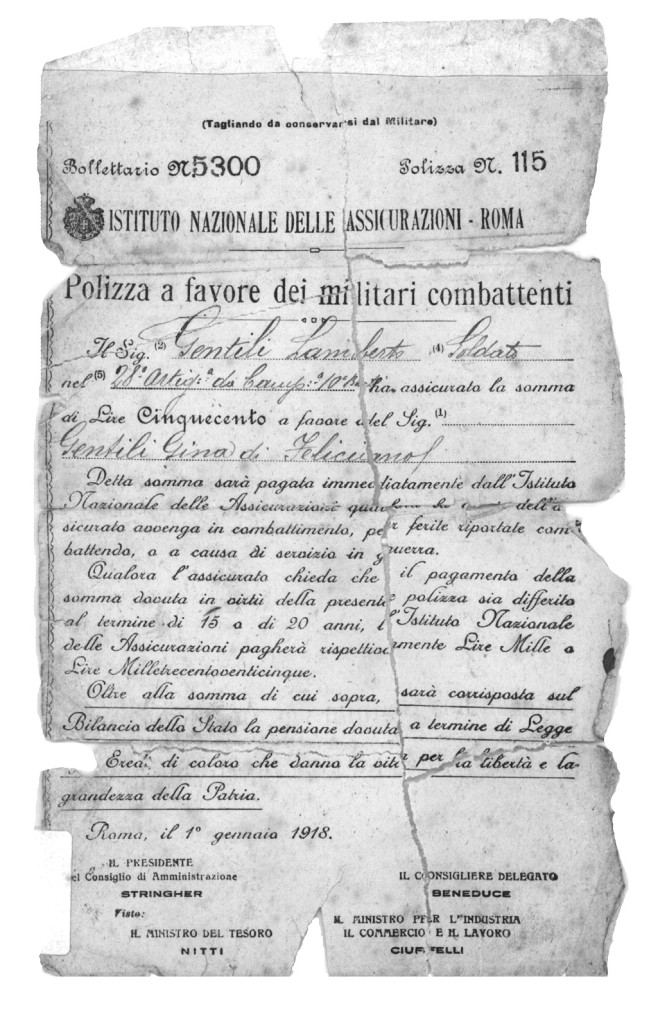 (Tagliando da conservarsi dal Militare)
Bollettario N. 5300 Polizza N. 115
ISTITUTO NAZIONALE DELLE ASSICURAZIONI - ROMA
Polizza a favore dei militari combattenti
Il Sig. (2) Gentili Lamberto (4) Soldato
nel (5) 28ª Artig.ª da Camp.ª 10ª ha assicurato la somma
di Lire Cinquecento a favore del Sig. (1)
Gentili Gina di Feliciano
Detta somma sarà pagata immediatamente dall'Istituto
Nazionale delle Assicurazioni dell'a
sicurato avvenga in combattimento, per ferite riportate com-
battendo, o a causa di servizio in guerra.
Qualora l'assicurato chieda che il pagamento della
somma dovuta in virtù della presente polizza sia differito
al termine di 15 o di 20 anni, l'Istituto Nazionale
delle Assicurazioni pagherà rispettivamente Lire Mille o
Lire Milletrecentoventicinque.
Oltre alla somma di cui sopra, sarà corrisposta sul
Bilancio dello Stato la pensione dovuta a termine di Legge
Eredi di coloro che danno la vita per la libertà e la
grandezza della Patria.
Roma, il 1° gennaio 1918.
IL PRESIDENTE
el Consiglio di Amministrazione IL CONSIGLIERE DELEGATO
STRINGHER BENEDUCE
Visto: IL MINISTRO PER L'INDUSTRIA
IL MINISTRO DEL TESORO IL COMMERCIO E IL LAVORO
NITTI CIUFFELLI